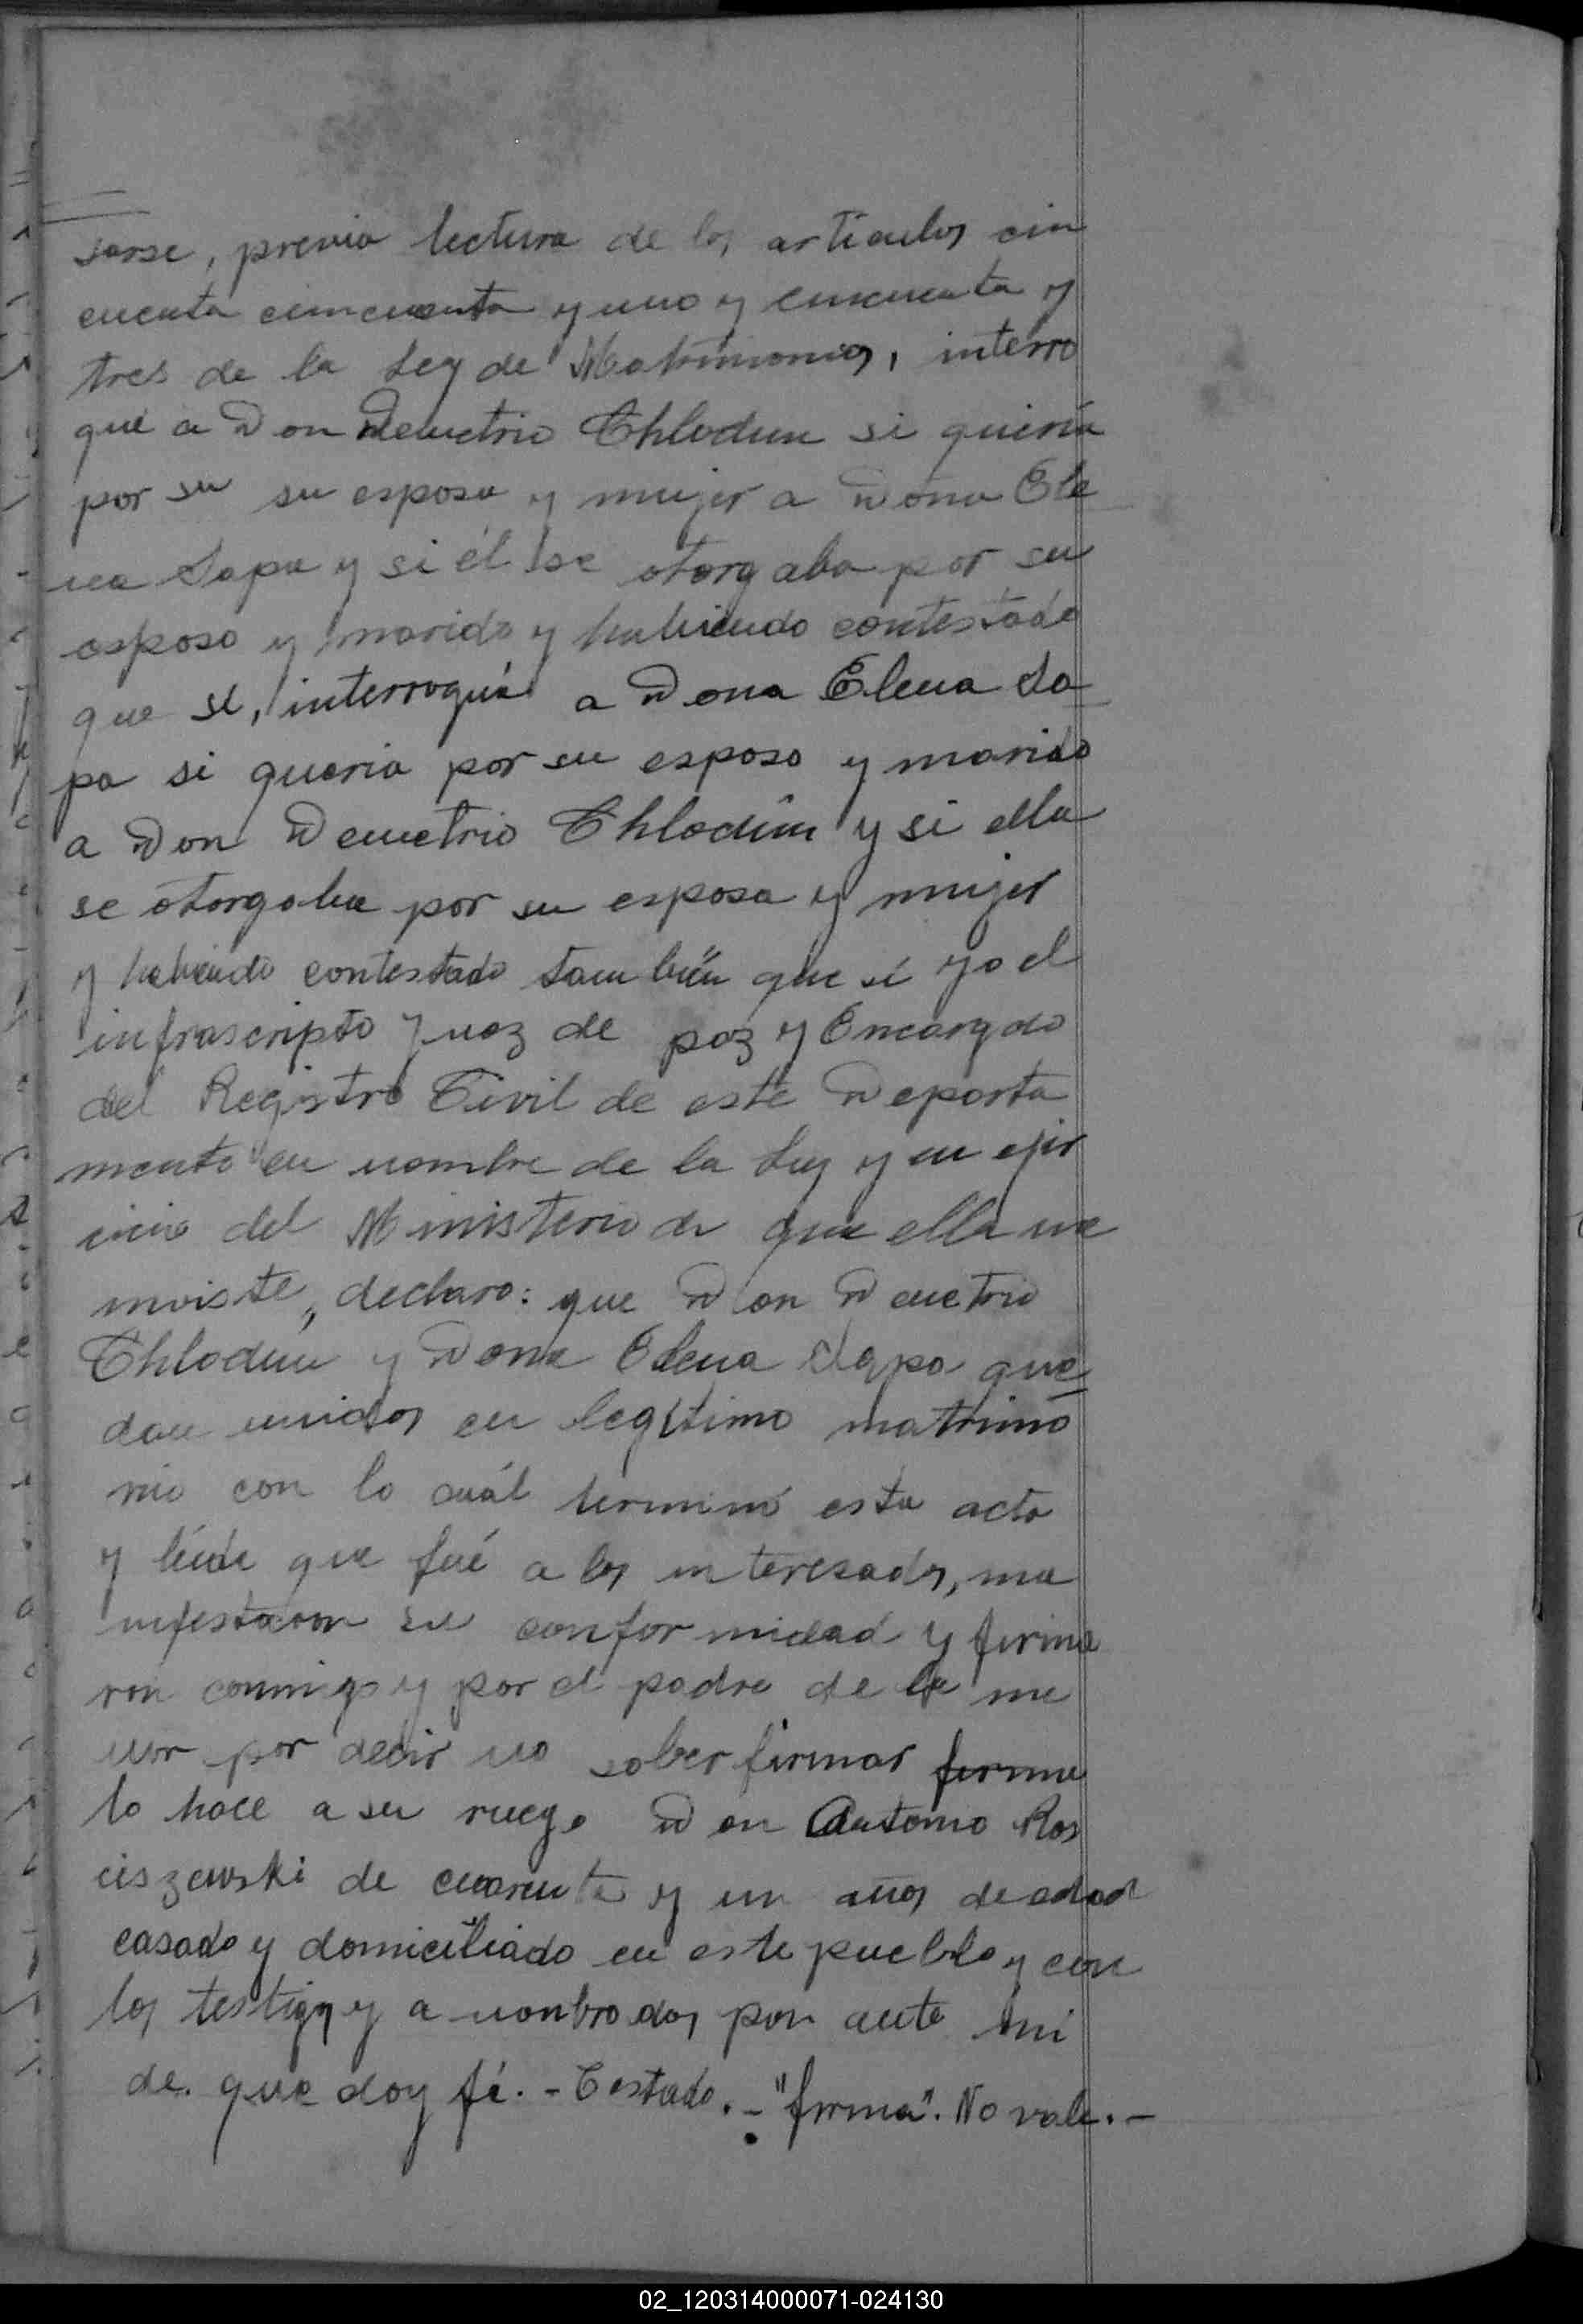 sarse, previa lectura de los articulos cin
cuenta cincuenta y uno y cincuenta y
tres de la Ley de Matrimonios, interro
gué a Don Demetrio Chlodun si quería
por su su esposa y mujer a Dona Ele
na Sapa y si él se otorgaba por su
esposo y marido y habiendo contestado
que sí, interrogué a Dona Elena Sa
pa si queria por su esposo y marido
a Don Demetrio Chlodun y si ella
se otorgaba por su esposa y mujer
y habiendo contestado también que sí yo el
infrascripto Juez de paz y Encargado
del Registro Civil de este Departa
mento en nombre de la Ley y en ejer
cicio del Ministerio de que ella me
inviste, declaro: que Don Demetrio
Chlodun y Dona Elena Sapa que
dan unidos en legítimo matrimo
nio con lo cuál terminó esta acta
y leída que fué a los interesados, ma
nifestaron su conformidad y firma
ron conmigo y por el padre de la me
nor por decir no saber firmar firma
lo hace a su ruego Don Antonio Ros
ciszewski de cuarenta y un años de edad
casado y domiciliado en este pueblo y con
los testigos y a nonbrados por ante mi
de que doy fé. - Testado. - "firma". No vale. -
02_120314000071-024130